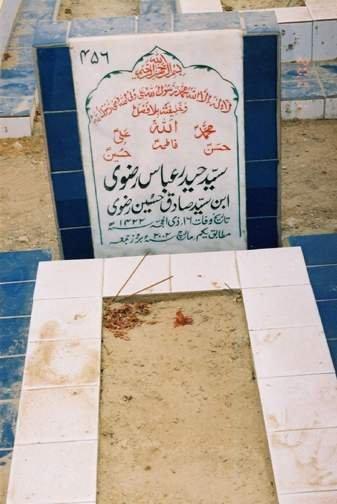 ۴۵۶
بسم اللہ الرحمن الرحیم
لا الہ الا اللہ محمد رسول اللہ علی ولی اللہ وصی رسول اللہ
وخلیفتہ بلا فصل
محمدؐ اللہ علیؑ
حسنؑ فاطمہؑ حسینؑ
سید حیدر عباس رضوی
ابن سید صادق حسین رضوی
تاریخ وفات ۱۶، ذی الحجہ ۱۴۲۲ھ
مطابق یکم، مارچ ۲۰۰۲ء بروز جمعہ